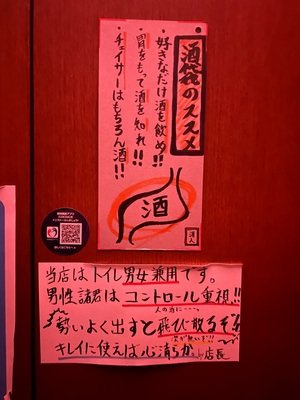 酒袋のススメ
・好きなだけ酒を飲め!!
・胃をもって酒を知れ!!
・チェイサーはもちろん酒!!
酒
当店はトイレ男女兼用です。
男性諸君はコントロール重視!!
勢いよく出すと飛び散るぞ!!
キレイに使えば心清らか by店長